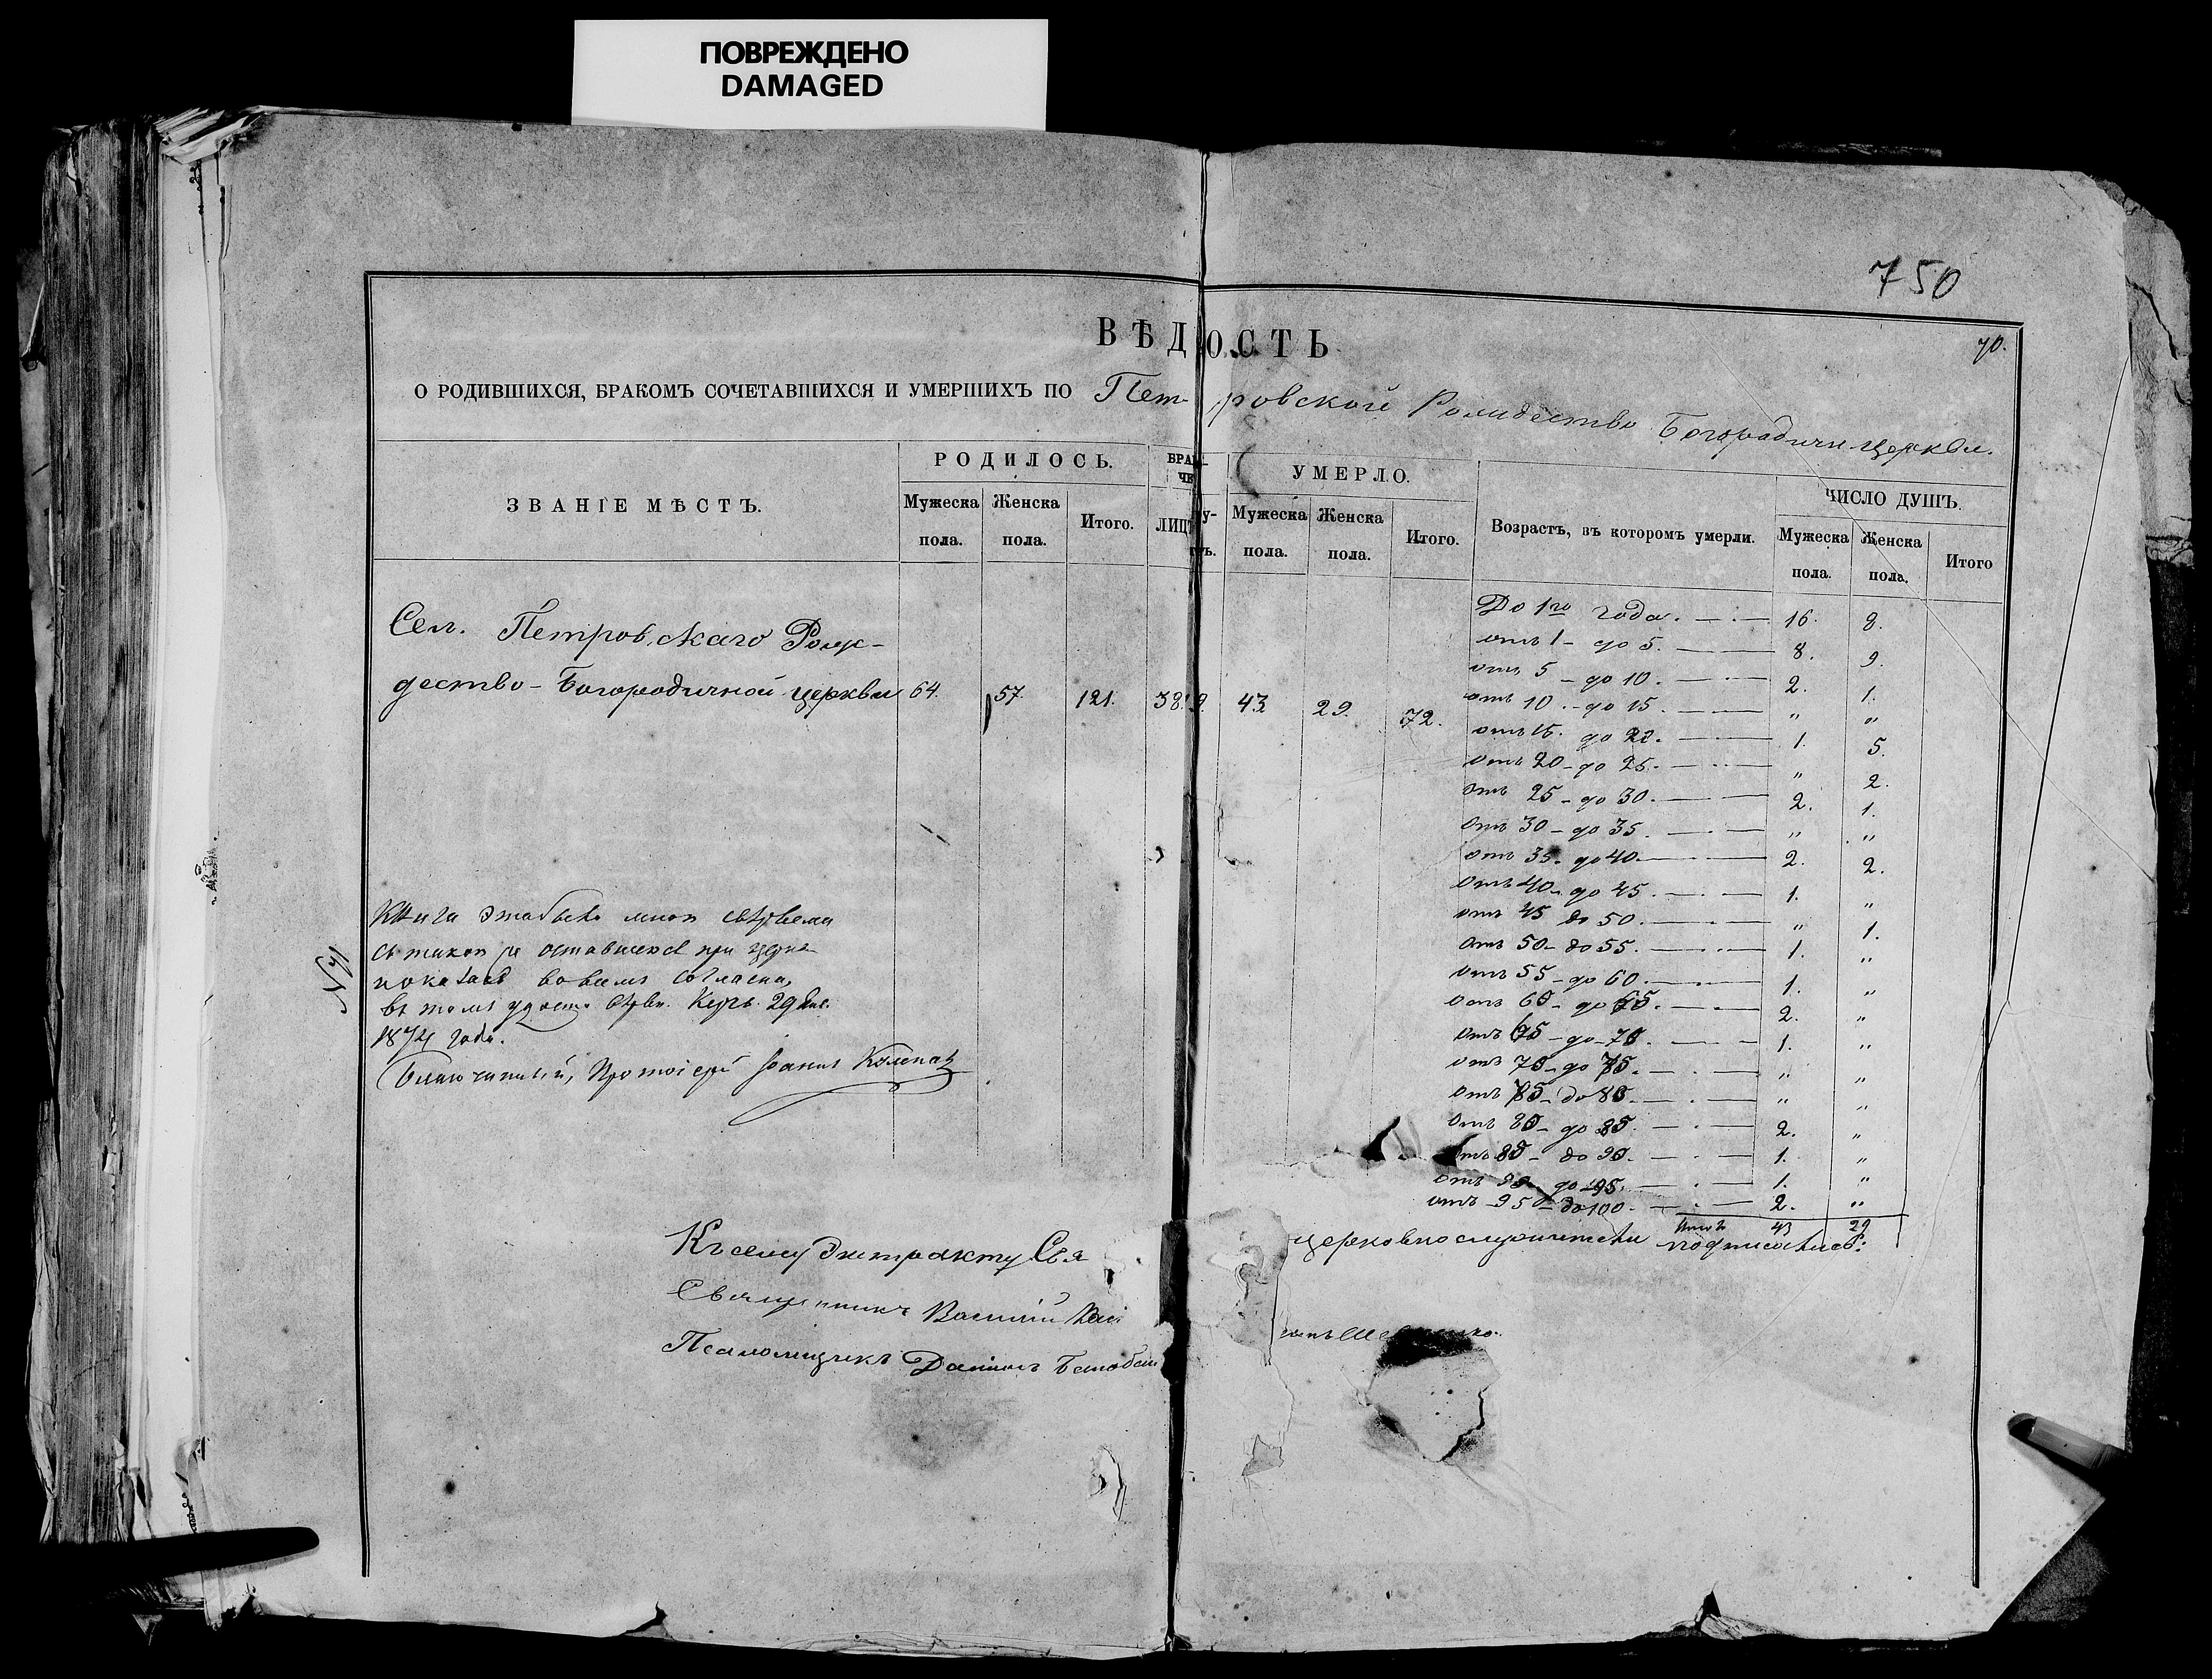 ПОВРЕЖДЕНО
DAMAGED
750
70.
ВѢДОСТЬ
О РОДИВШИХСЯ, БРАКОМЪ СОЧЕТАВШИХСЯ И УМЕРШИХЪ ПО Петровской Рождество Богородичн церкви.
ЗВАНІЕ МѢСТЪ.
РОДИЛОСЬ.
Мужеска пола.
Женска пола.
Итого.
УМЕРЛО.
Мужеска пола.
Женска пола.
Итого.
Возрастъ, въ которомъ умерли.
ЧИСЛО ДУШЪ.
Мужеска пола.
Женска пола.
Итого
Сел. Петровскаго Рож-
дество-Богородичной церкви 64. 57. 121. 38. 43. 29. 72.
До 1го года. 16. 8.
отъ 1 - до 5. 8. 9.
отъ 5 - до 10. 2. 1.
отъ 10 - до 15. " "
отъ 15. до 20. 1. 5.
отъ 20 - до 25. " 2.
отъ 25 - до 30. 2. 1.
отъ 30 - до 35. " "
отъ 35 - до 40. 2. 2.
отъ 40 - до 45. 1. "
отъ 45 до 50. " 1.
отъ 50 - до 55. 1. "
отъ 55 - до 60. 1. "
отъ 60 - до 65. 2. "
отъ 65 - до 70. 1. "
отъ 70 - до 75. " "
отъ 75 - до 80. " "
отъ 80 - до 85. 2. "
85 - до 90. 1. "
отъ 90 - до 95. 1. "
отъ 95 - до 100. 2. "
Итого 43 29
Книга эта мною
съ такою же оставшеюся при
во всемъ согласна,
въ томъ 29
1874 года.
Благочинный, Протоіерей Іоаннъ
Къ сему Экстракту церковнослужители подписались:
Священникъ Василій
Псаломщикъ Даніилъ